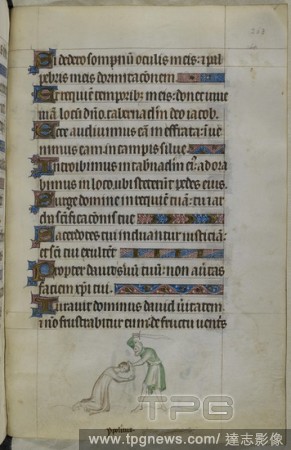 268
Si dedero sompnū oculis meis: ⁊ pal
pebris meis dormitacōnem.
Et requiē temporibȝ meis: donec inue
niā locū dn̄o. tabernac̄lm deo iacob.
Ecce audiuimus eā in effrata: īue
nimus eam. in campis silue
Introibimus in tab̄nac̄lm ei9: adora
bimus in loco. ubi steterūt pedes eius.
Surge domine in requiē tuā: tu ⁊ ar
cha sc̄ificacōnis tue
Sacerdotes tui induantur iusticiā:
et sc̄i tui exultēt
Propter dauid seruū tuū: non au̅tas
faciem xp̄i tui.
Iurauit dominus dauid u̅itatem
⁊ nō frustrabitur eum: de fructu uentris
TPG
www.tpgnews.com / 達志影像